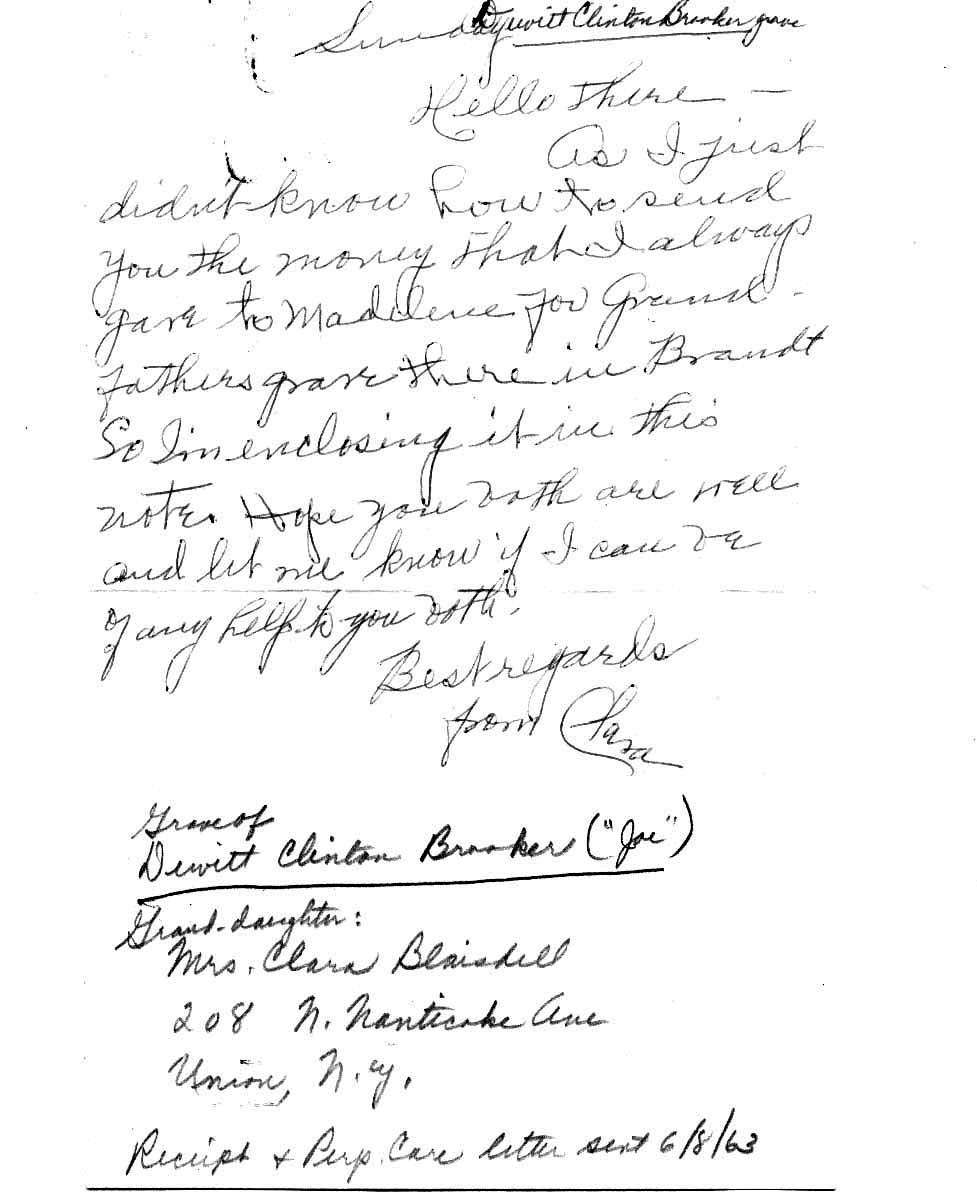 Sunday
Dewitt Clinton Brooker grave
Hello there —
As I just
didn't know how to send
you the money that I always
gave to Madelene for Grand-
fathers grave there in Brandt
So I'm enclosing it in this
note. Hope you both are well
and let me know if I can be
of any help to you both.
Best regards
from Clara
Grave of
Dewitt Clinton Brooker ("Joe")
Grand-daughter:
Mrs. Clara Blaisdell
208 N. Nanticoke Ave
Union, N.Y.
Receipt + Perp. Care letter sent 6/8/63